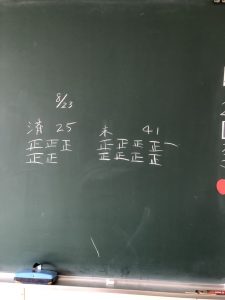 8/23
済 25 未 41
正正正 正正正正一
正正 正正正正